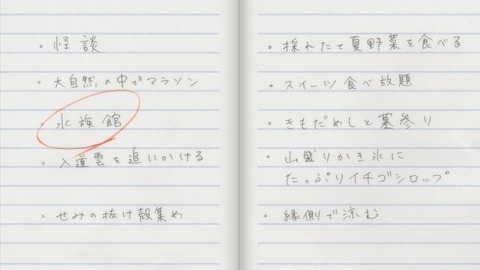 ・怪談
・大自然の中でマラソン
・水族館
・入道雲を追いかける
・せみの抜け殻集め
・採れたて夏野菜を食べる
・スイーツ食べ放題
・きもだめしと墓参り
・山盛りかき氷に
たっぷりイチゴシロップ
・縁側で涼む